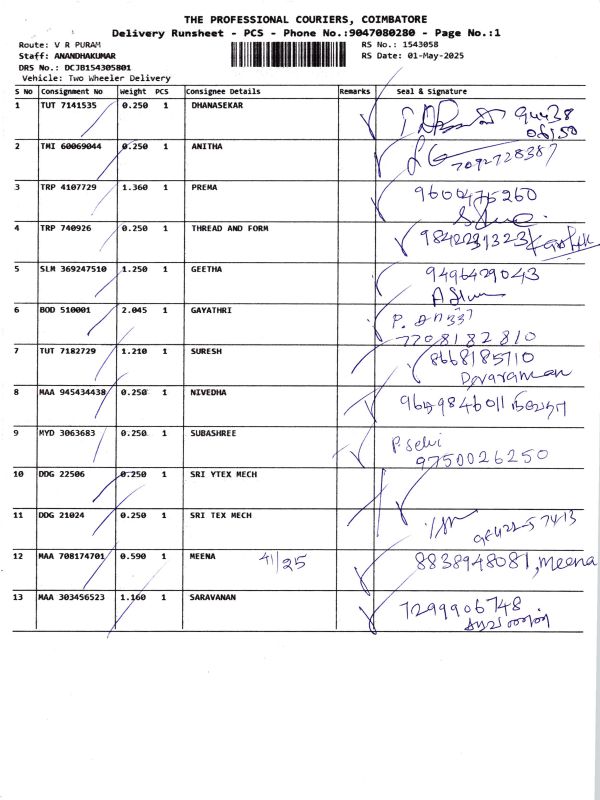 THE PROFESSIONAL COURIERS, COIMBATORE
Delivery Runsheet - PCS - Phone No.:9047080280 - Page No.:1
Route: V R PURAM RS No.: 1543058
Staff: ANANDHAKUMAR RS Date: 01-May-2025
DRS No.: DCJB154305801
Vehicle: Two Wheeler Delivery
S No Consignment No Weight PCS Consignee Details Remarks Seal & Signature
1 TUT 7141535 0.250 1 DHANASEKAR 94438
06150
2 TMI 60069044 0.250 1 ANITHA 7092728387
3 TRP 4107729 1.360 1 PREMA 9600475260
4 TRP 740926 0.250 1 THREAD AND FORM 9842231323 Karthik
5 SLM 369247510 1.250 1 GEETHA 9496429043
6 BOD 510001 2.045 1 GAYATHRI
7708182810
7 TUT 7182729 1.210 1 SURESH 8668185710
Devaraman
8 MAA 945434438 0.250 1 NIVEDHA நிவேதா
9 MYD 3063683 0.250 1 SUBASHREE P. Selvi
9750026250
10 DDG 22506 0.250 1 SRI YTEX MECH
11 DDG 21024 0.250 1 SRI TEX MECH
12 MAA 708174701 0.590 1 MEENA 41/25 8838948081, Meena
13 MAA 303456523 1.160 1 SARAVANAN 7299906748
சரவணன்